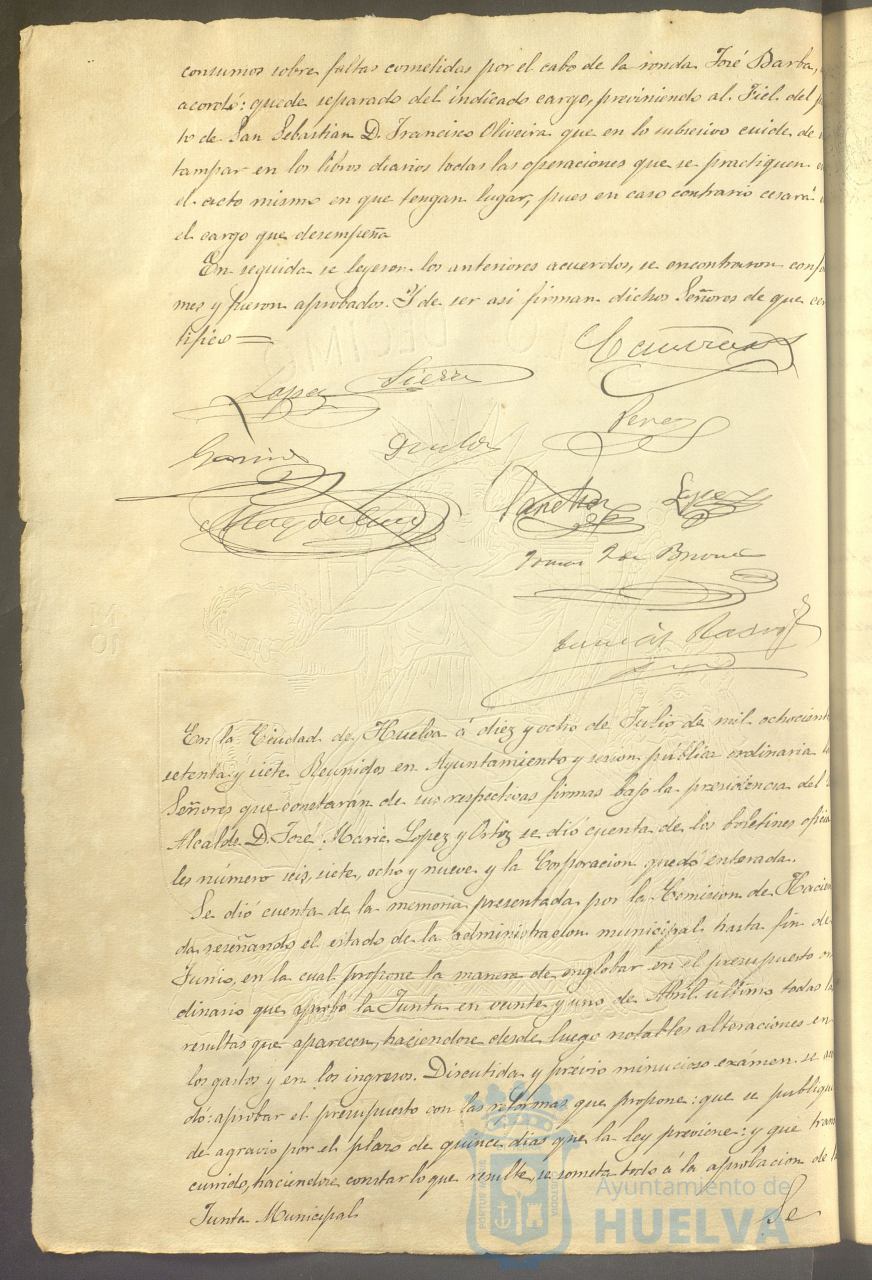 consumos sobre faltas cometidas por el cabo de la ronda José Barba,
acordó: quede separado del indicado cargo, previniendo al Fiel del
to de San Sebastian D. Francisco Oliveira que en lo subsesivo cuide de
tampar en los libros diarios todas las operaciones que se practiquen
el acto mismo en que tengan lugar, pues en caso contrario cesará
el cargo que desempeña
En seguida se leyeron los anteriores acuerdos, se encontraron confor
mes y fueron aprobados. Y de ser asi firman dichos Señores de que cer
tifico =
Lopez Sierra
Perez
Garcia
Sanchez Lopez
En la Ciudad de Huelva á diez y ocho de Julio de mil ochocient
setenta y siete Reunidos en Ayuntamiento y sesion pública ordinaria
Señores que constarán de sus respectivas firmas bajo la presidencia del
Alcalde D. José Maria Lopez y Ortiz se dió cuenta de los boletines oficia
les número seis, siete, ocho y nueve y la Corporacion quedó enterada.
Se dió cuenta de la memoria presentada por la Comision de Hacien
da reseñando el estado de la administracion municipal hasta fin de
Junio, en la cual propone la manera de englobar en el presupuesto or
dinario que aprobó la Junta en veinte y uno de Abril último todas la
resultas que aparecen, haciendose desde luego notables alteraciones en
los gastos y en los ingresos. Discutida y prévio minucioso exámen se
dó: aprobar el presupuesto con las reformas que propone: que se publique
de agravio por el plazo de quince dias que la ley previene: y que tran
currido, haciendose constar lo que resulte, se someta todo á la aprobacion de l
Junta Municipal
Se
PORTUS
CUSTODIA
Ayuntamiento de
HUELVA